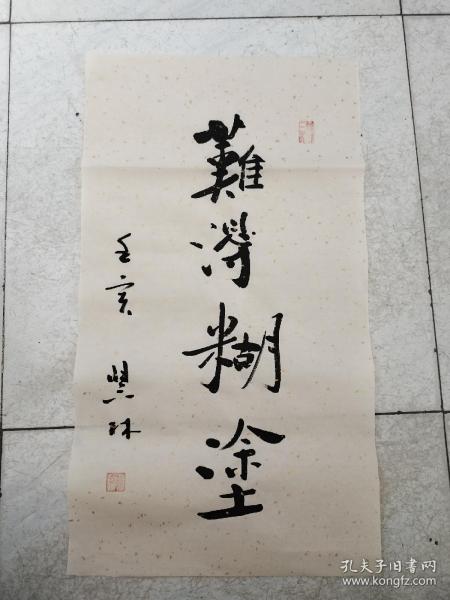 難得糊塗
壬寅 興林
孔夫子旧书网
www.kongfz.com